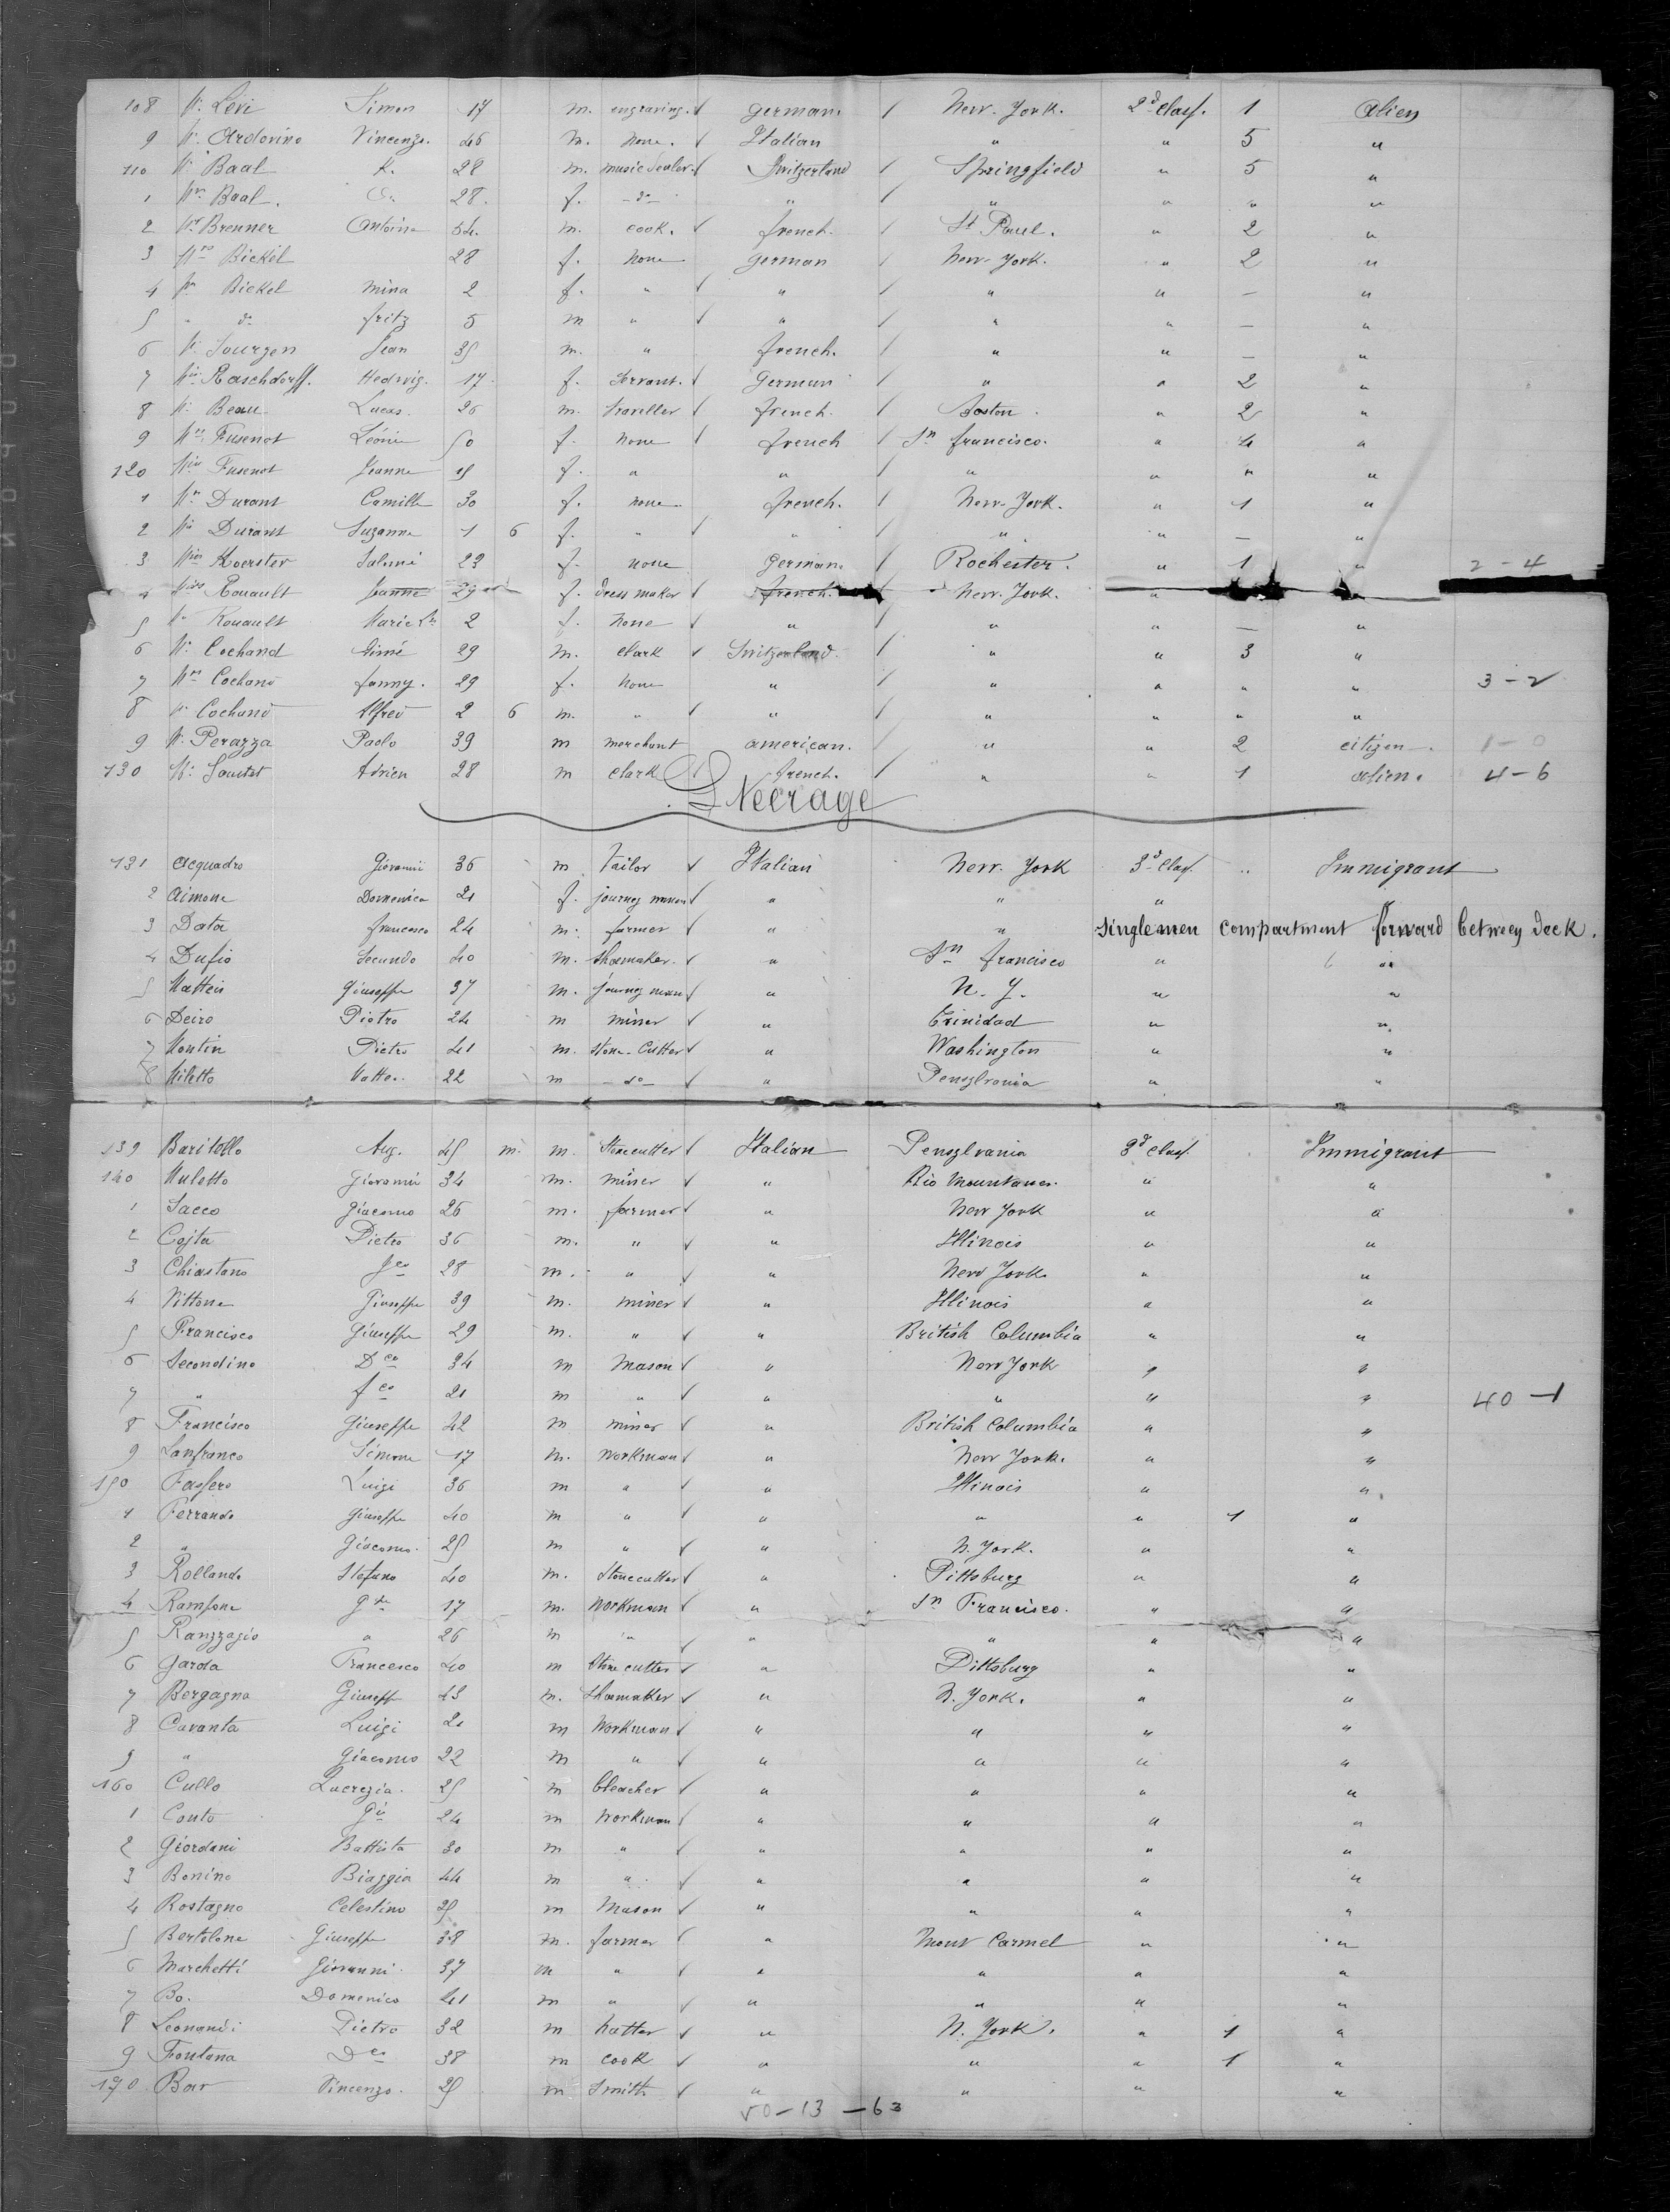 108 Mr. Levi Simon 17 m. engraving. german. New-York. 2d class. 1 alien
9 Mr. Ardovino Vincenzo. 46 m. none. Italian " " 5 "
110 Mr. Baal K. 28 m. music dealer. Switzerland Springfield " 5 "
1 Mme Baal. 28. f. -do- " " " " "
2 Mr Brenner Antoine 54. m. cook. french. St Paul. " 2 "
3 Mme Bickel 28 f. none german New-York. " 2 "
4 Bickel Mina 2 f. " " " " — "
5 " do fritz 5 m " " " " — "
6 Mr. Jourgen Jean 35 m. " french. " " — "
7 Mlle Raschdorff. Hedwig. 17. f. Servant. German " " 2 "
8 Mr. Beau Lucas. 26 m. traveller french. Boston. " 2 "
9 Mme Fusenot Léonie 50 f. none french Sn francisco. " 4 "
120 Mlle Fusenot Jeanne 15 f. " " " " " "
1 Me Durant Camille 30 f. none french. New-York. " 1 "
2 Durant Suzanne 1 6 f. " " " " — "
3 Mlle Koerster Salomé 23 f. none german. Rochester. " 1 " 2-4
4 Rouault Jeanne 29 f. dress maker french. New-York. "
5 Rouault Marie 2 f. none " " " — "
6 Mr. Cochand Aimé 29 m. clark Switzerland. " " 3 "
7 Mme Cochand fanny. 29 f. none " " " " " 3-2
8 Cochand Alfred 2 6 m. " " " " " "
9 Mr. Perazza Paolo 39 m merchant american. " " 2 citizen. 1-0
130 Mr. Sautet Adrien 28 m clark french. " " 1 alien. 4-6
Steerage
131 Acquadro Giovanni 36 m tailor Italian New York 3d class. " Immigrant
2 Aimone Domenica 21 f. journey man " " "
3 Data francesco 24 m. farmer " " single men compartment forward between deck.
4 Dufio Secundo 40 m. shoemaker. " Sn francisco " "
5 Matteis Giuseppe 37 m. journey man " N. Y. " "
6 Deiro Pietro 24 m miner " Trinidad " "
7 Montin Pietro 41 m. stone-cutter " Washington " "
8 Miletto Matteo. 22 m -do- " Pensylvania " "
139 Baritello Aug. 45 m. m. Stonecutter Italian Pensylvania 3d class. Immigrant
140 Muletto Giovanni 34 m. miner " Rio Mountanes. " "
1 Sacco Giacomo 26 m. farmer " New York " "
2 Cojta Pietro 36 m. " " Illinois " "
3 Chiastano Gco 28 m. " " New York. " "
4 Vittone Giuseppe 39 m. miner " Illinois " "
5 Francisco Giuseppe 29 m. " " British Columbia " "
6 Secondino Dco 34 m Mason " New York " "
7 " fco 21 m " " " " " 40-1
8 Francisco Giuseppe 42 m miner " British Columbia " "
9 Lanfranco Simone 17 m. workman " New York. " "
150 Fassero Luigi 36 m " " Illinois " "
1 Ferrando Giuseppe 40 m " " " " 1 "
2 " Giacomo. 25 m " " N. York. " "
3 Rollando Stefano 40 m. Stonecutter " Pittsburg " "
4 Ramsone 17 m. Workman " Sn Francisco. " "
5 Ranzzagio " 26 m " " " " "
6 Garda Francesco 40 m Stone cutter " Pittsburg " "
7 Bergagna Giuseppe 43 m. shoemaker " N. York. " "
8 Cavanta Luigi 21 m Workman " " " "
9 " Giacomo 22 m " " " " "
160 Cullo Lucrezia. 25 m bleacher " " " "
1 Conto 24 m Workman " " " "
2 Giordani Battista 30 m " " " " "
3 Bonino Biaggio 44 m " " " " "
4 Rostagno Celestino 25 m Mason " " " "
5 Bertolone Giuseppe 38 m. farmer " Mont Carmel " "
6 Marchetti Giovanni 37 m " " " " "
7 Bo. Domenico 41 m " " " " "
8 Leonardi Pietro 32 m hatter " N. York. " 1 "
9 Fontana Dco 38 m cook " " " 1 "
170 Bar Vincenzo. 25 m Smith " " " "
50-13-63